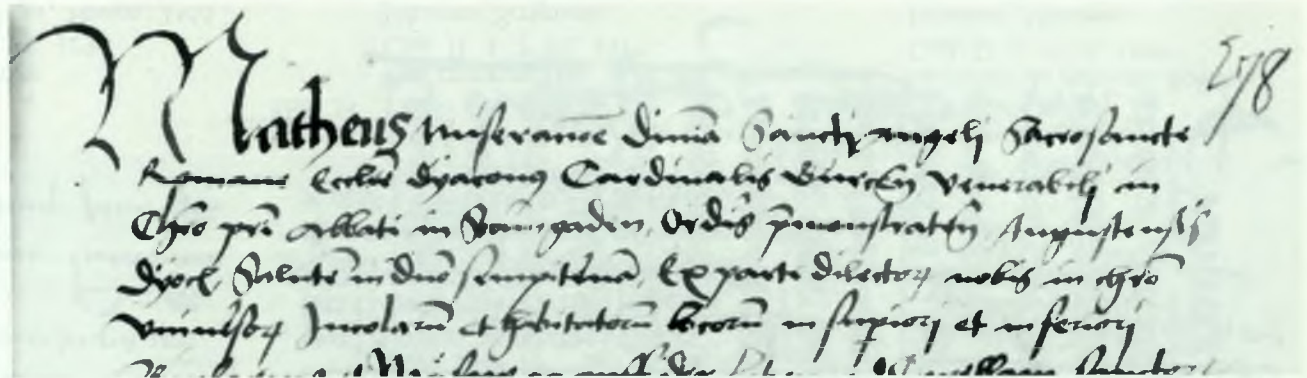 278
Matheus miseracoe divina Sancti Angeli Sacrosancte
Romane Ecclie dyaconus Cardinalis Gurcen Venerabili in
Chro pri Abbati in Staingaden Ordis premonstraten Augustensis
dyoc Salute in dno sempiterna Ex parte dilector nobis in chro
universor Incolaru et habitatoru locoru in superiori et inferiori
et